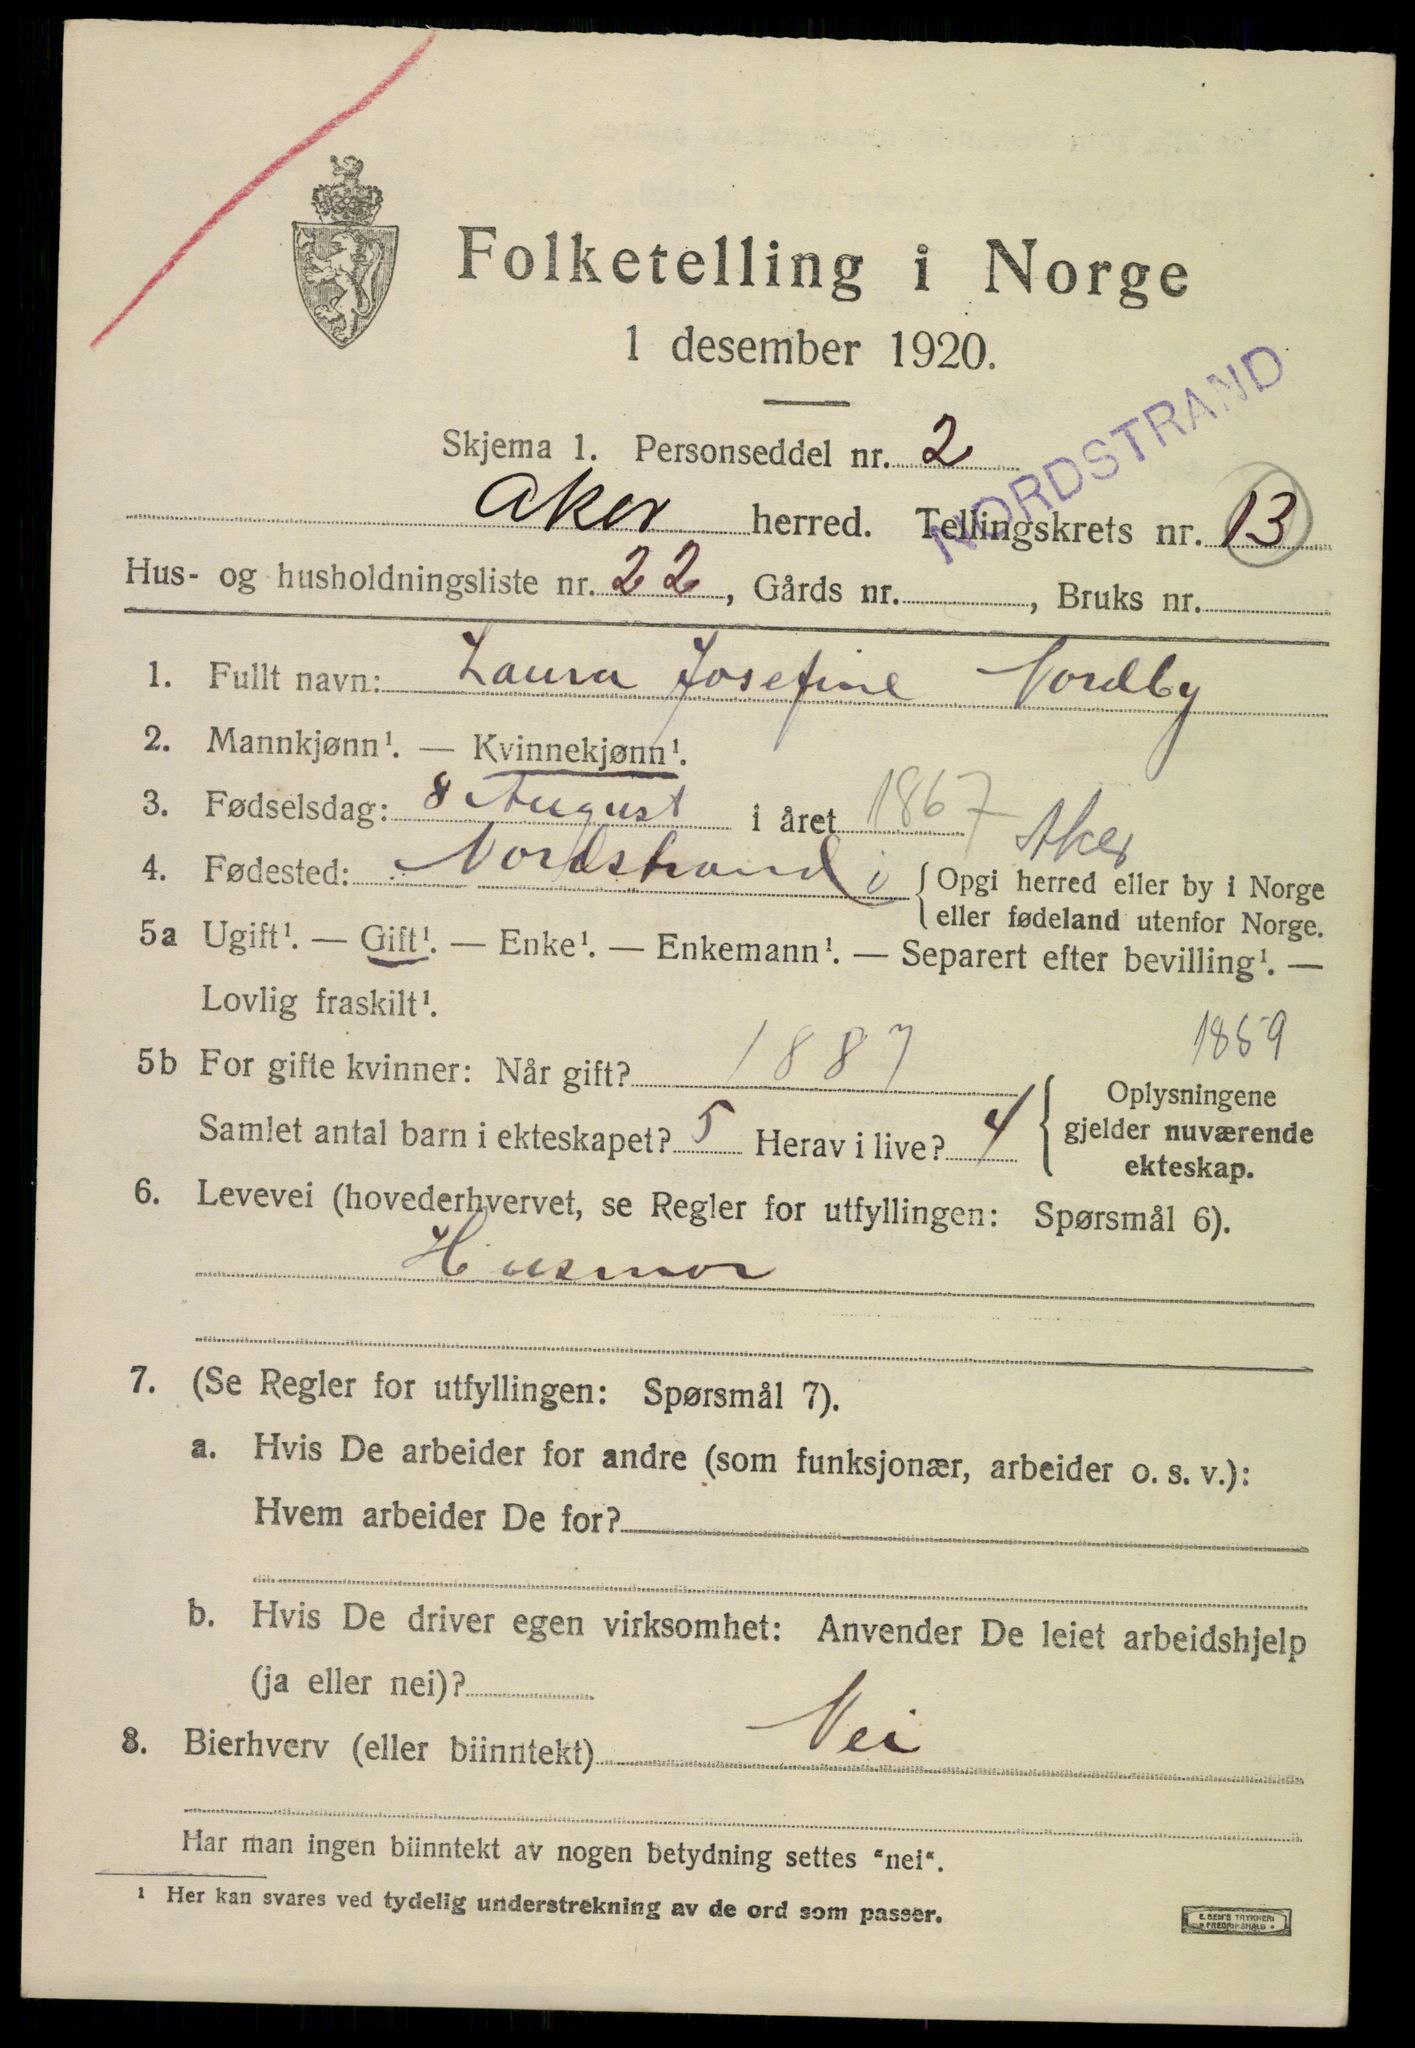 Folketelling i Norge
1 desember 1920.
NORDSTRAND
Skjema 1. Personseddel nr. 2
Aker herred. Tellingskrets nr. 13
Hus- og husholdningsliste nr. 22, Gårds nr. , Bruks nr.
1. Fullt navn: Laura Josefine Nordby
2. Mannkjønn¹. — Kvinnekjønn¹.
3. Fødselsdag: 8 August i året 1867
Aker
4. Fødested: Nordstrand i { Opgi herred eller by i Norge
eller fødeland utenfor Norge.
5a Ugift¹. — Gift¹. — Enke¹. — Enkemann¹. — Separert efter bevilling¹. —
Lovlig fraskilt¹.
1859
5b For gifte kvinner: Når gift? 1887
Samlet antal barn i ekteskapet? 5 Herav i live? 4 { Oplysningene
gjelder nuværende
ekteskap.
6. Levevei (hovederhvervet, se Regler for utfyllingen: Spørsmål 6).
Husmor
7. (Se Regler for utfyllingen: Spørsmål 7).
a. Hvis De arbeider for andre (som funksjonær, arbeider o. s. v.):
Hvem arbeider De for?
b. Hvis De driver egen virksomhet: Anvender De leiet arbeidshjelp
(ja eller nei)?
8. Bierhverv (eller biinntekt) Nei
Har man ingen biinntekt av nogen betydning settes "nei".
¹ Her kan svares ved tydelig understrekning av de ord som passer.
E. SEM'S TRYKKERI
FREDRIKSHALD